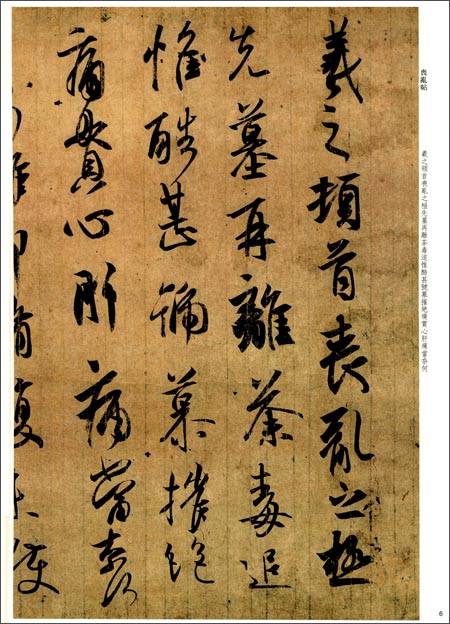 喪亂帖
羲之頓首喪亂之極先墓再離荼毒追惟酷甚號慕摧絶痛貫心肝痛當奈何
羲之頓首喪亂之極
先墓再離荼毒追
惟酷甚號慕摧絶
痛貫心肝痛當奈何
雖即脩復未獲
6